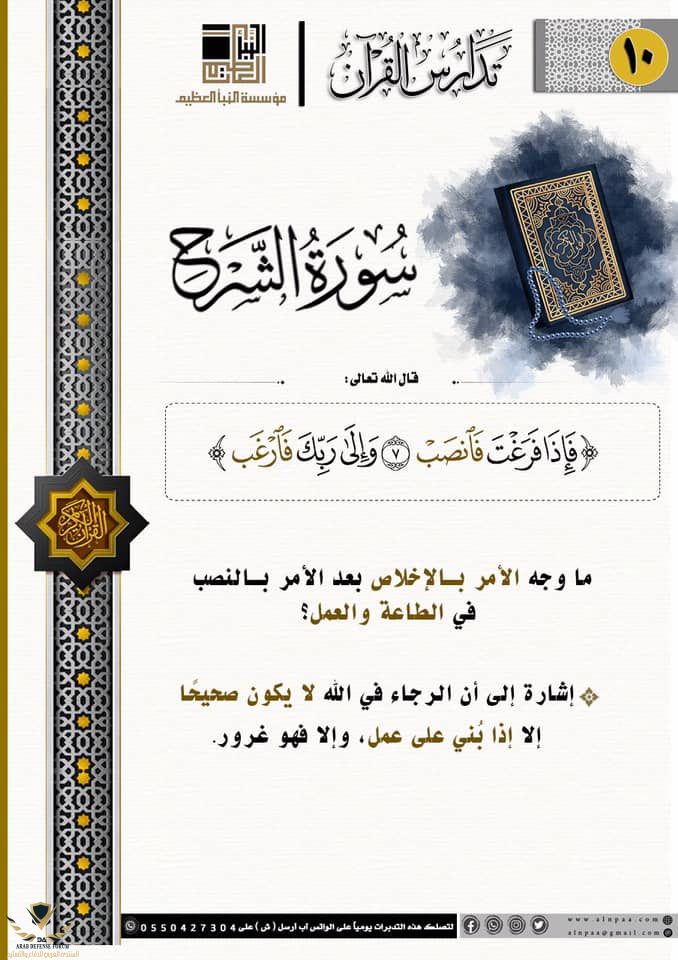 ١٠
تدارس القرآن
النبأ العظيم
مؤسسة النبأ العظيم
سُورَةُ الشَّرَحِ
قال الله تعالى:
﴿فَإِذَا فَرَغْتَ فَٱنصَبْ ٧ وَإِلَىٰ رَبِّكَ فَٱرْغَب﴾
القرآن الكريم
ما وجه الأمر بالإخلاص بعد الأمر بالنصب
في الطاعة والعمل؟
إشارة إلى أن الرجاء في الله لا يكون صحيحًا
إلا إذا بُني على عمل، وإلا فهو غرور.
لتصلك هذه التدبرات يومياً على الواتس آب أرسل ( ش ) على 0550427304
www.alnpaa.com
alnpaa@gmail.com
ARAB DEFENSE FORUM
المنتدى العربي للدفاع والتسليح